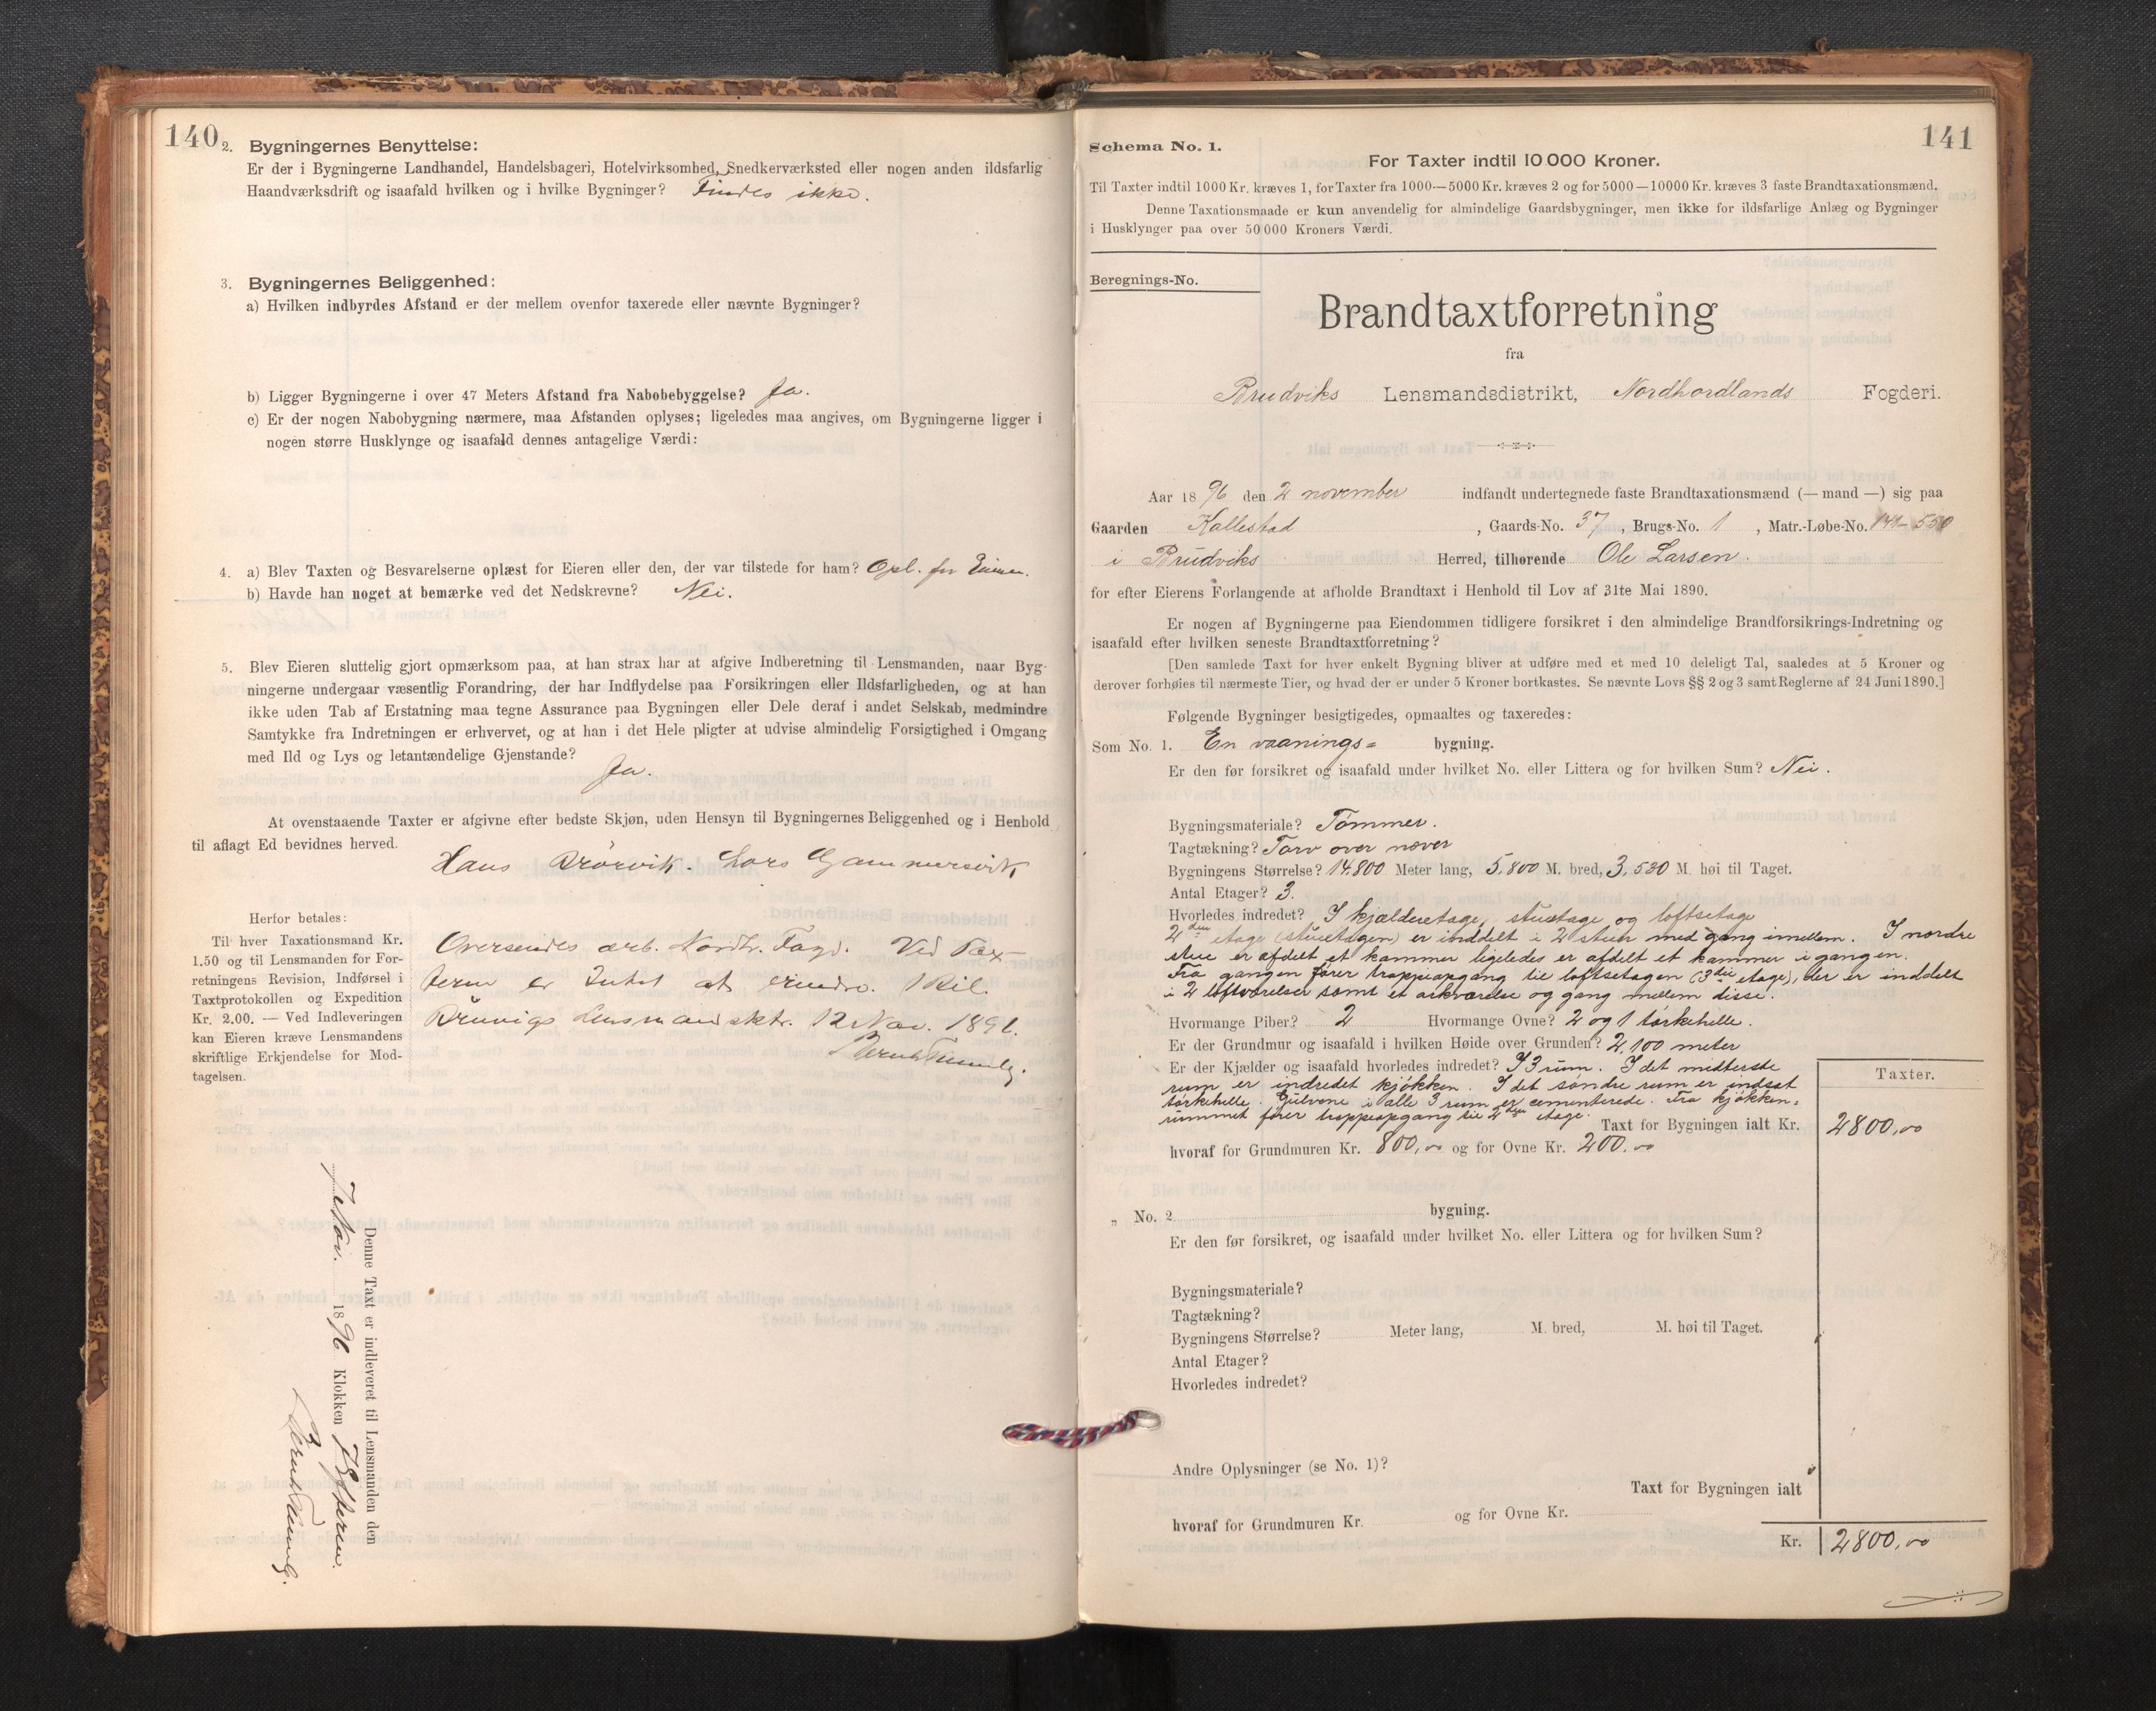 140
2. Bygningernes Benyttelse:
Er der i Bygningerne Landhandel, Handelsbageri, Hotelvirksomhed, Snedkerværksted eller nogen anden ildsfarlig
Haandværksdrift og isaafald hvilken og i hvilke Bygninger? Findes ikke.
3. Bygningernes Beliggenhed:
a) Hvilken indbyrdes Afstand er der mellem ovenfor taxerede eller nævnte Bygninger?
b) Ligger Bygningerne i over 47 Meters Afstand fra Nabobebyggelse? Ja.
c) Er der nogen Nabobygning nærmere, maa Afstanden oplyses; ligeledes maa angives, om Bygningerne ligger i
nogen større Husklynge og isaafald dennes antagelige Værdi:
4. a) Blev Taxten og Besvarelserne oplæst for Eieren eller den, der var tilstede for ham? Opl. for Eieren.
b) Havde han noget at bemærke ved det Nedskrevne? Nei.
5. Blev Eieren sluttelig gjort opmærksom paa, at han strax har at afgive Indberetning til Lensmanden, naar Byg-
ningerne undergaar væsentlig Forandring, der har Indflydelse paa Forsikringen eller Ildsfarligheden, og at han
ikke uden Tab af Erstatning maa tegne Assurance paa Bygningen eller Dele deraf i andet Selskab, medmindre
Samtykke fra Indretningen er erhvervet, og at han i det Hele pligter at udvise almindelig Forsigtighed i Omgang
med Ild og Lys og letantændelige Gjenstande?
Ja.
At ovenstaaende Taxter er afgivne efter bedste Skjøn, uden Hensyn til Bygningernes Beliggenhed og i Henhold
til aflagt Ed bevidnes herved.
Hans Brörvik. Lars Gammersvik
Herfor betales:
Til hver Taxationsmand Kr.
1.50 og til Lensmanden for For-
retningens Revision, Indførsel i
Taxtprotokollen og Expedition
Kr. 2.00. — Ved Indleveringen
kan Eieren kræve Lensmandens
skriftlige Erkjendelse for Mod-
tagelsen.
Oversendes ærb. Nordh. Fogd. Ved Tax-
terne er Intet at erindre.
Bruvigs Lensmandsktr. 12 Nov. 1896.
Denne Taxt er indleveret til Lensmanden den
7 Nov. 1896 Klokken 7 Efterm.
141
Schema No. 1.
For Taxter indtil 10 000 Kroner.
Til Taxter indtil 1000 Kr. kræves 1, for Taxter fra 1000—5000 Kr. kræves 2 og for 5000—10000 Kr. kræves 3 faste Brandtaxationsmænd.
Denne Taxationsmaade er kun anvendelig for almindelige Gaardsbygninger, men ikke for ildsfarlige Anlæg og Bygninger
i Husklynger paa over 50 000 Kroners Værdi.
Beregnings-No.
Brandtaxtforretning
fra
Brudviks Lensmandsdistrikt, Nordhordlands Fogderi.
Aar 1896 den 2 november indfandt undertegnede faste Brandtaxationsmænd (— mand —) sig paa
Gaarden Kallestad, Gaards-No. 37, Brugs-No. 1, Matr.-Løbe-No.
i Brudviks Herred, tilhørende Ole Larsen.
for efter Eierens Forlangende at afholde Brandtaxt i Henhold til Lov af 31te Mai 1890.
Er nogen af Bygningerne paa Eiendommen tidligere forsikret i den almindelige Brandforsikrings-Indretning og
isaafald efter hvilken seneste Brandtaxtforretning?
[Den samlede Taxt for hver enkelt Bygning bliver at udføre med et med 10 deleligt Tal, saaledes at 5 Kroner og
derover forhøies til nærmeste Tier, og hvad der er under 5 Kroner bortkastes. Se nævnte Lovs §§ 2 og 3 samt Reglerne af 24 Juni 1890.]
Følgende Bygninger besigtigedes, opmaaltes og taxeredes:
Som No. 1. En vaanings= bygning.
Er den før forsikret og isaafald under hvilket No. eller Littera og for hvilken Sum? Nei.
Bygningsmateriale? Tömmer.
Tagtækning? Torv over næver
Bygningens Størrelse? 14,800 Meter lang, 5,800 M. bred, 3,530 M. høi til Taget.
Antal Etager? 3.
Hvorledes indredet? I kjælderetage, stuetage og loftsetage
2den etage (stuetagen) er inddelt i 2 stuer med gang imellem. I nordre
stue er afdelt et kammer ligeledes er afdelt et kammer i gangen.
Fra gangen fører trappeopgang til loftsetagen (3die etage), der er inddelt
i 2 loftværelser samt et arkværelse og gang mellem disse.
Hvormange Piber? 2 Hvormange Ovne? 2 og 1 tørkehelle.
Er der Grundmur og isaafald i hvilken Høide over Grunden? 2,100 meter
Er der Kjælder og isaafald hvorledes indredet? I 3 rum. I det midterste
rum er indredet kjökken. I det söndre rum er indsat
törkehelle. Gulvene i alle 3 rum er cementerede. Fra kjökken=
rummet förer trappeopgang til 2den etage.
Taxter.
Taxt for Bygningen ialt Kr. 2800,00
hvoraf for Grundmuren Kr. 800,00 og for Ovne Kr. 200,00
„ No. 2 bygning.
Er den før forsikret, og isaafald under hvilket No. eller Littera og for hvilken Sum?
Bygningsmateriale?
Tagtækning?
Bygningens Størrelse? Meter lang, M. bred, M. høi til Taget.
Antal Etager?
Hvorledes indredet?
Andre Oplysninger (se No. 1)?
Taxt for Bygningen ialt
hvoraf for Grundmuren Kr. og for Ovne Kr.
Kr. 2800,00